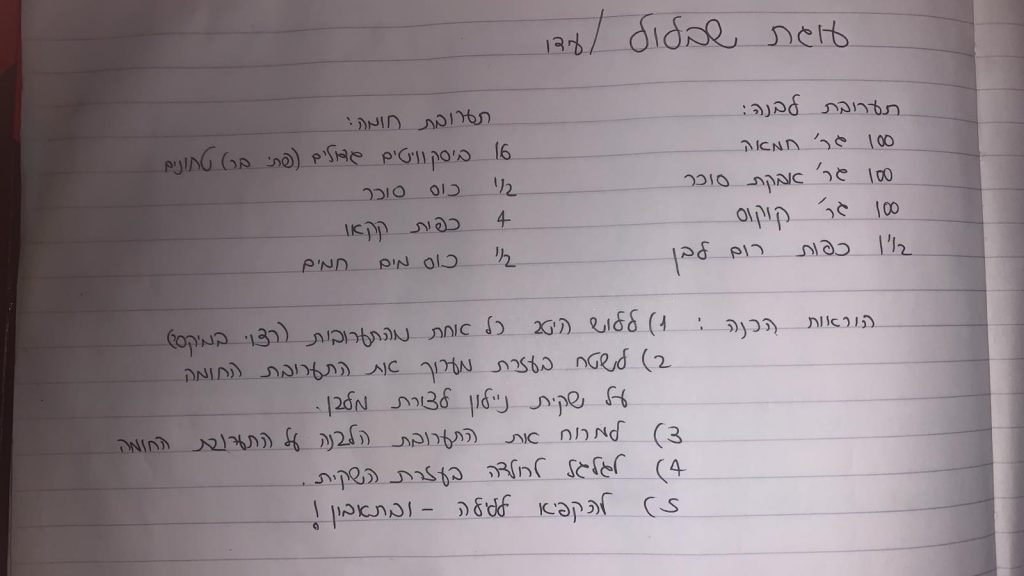 עוגת שבלול / עדו
תערובת לבנה:
100 גר' חמאה
100 גר' אבקת סוכר
100 גר' קוקוס
1 1/2 כפות רום לבן
תערובת חומה:
16 ביסקוויטים גדולים (פתי בר) טחונים
1/2 כוס סוכר
4 כפות קקאו
1/2 כוס מים חמים
הוראות הכנה: 1) ללוש היטב כל אחת מהתערובות (רצוי במיקסר)
2) לשטח בעזרת מערוך את התערובת החומה
על שקית ניילון לצורת מלבן.
3) למרוח את התערובת הלבנה על התערובת החומה
4) לגלגל לרולדה בעזרת השקית.
5) להקפיא ללילה - ובתאבון!